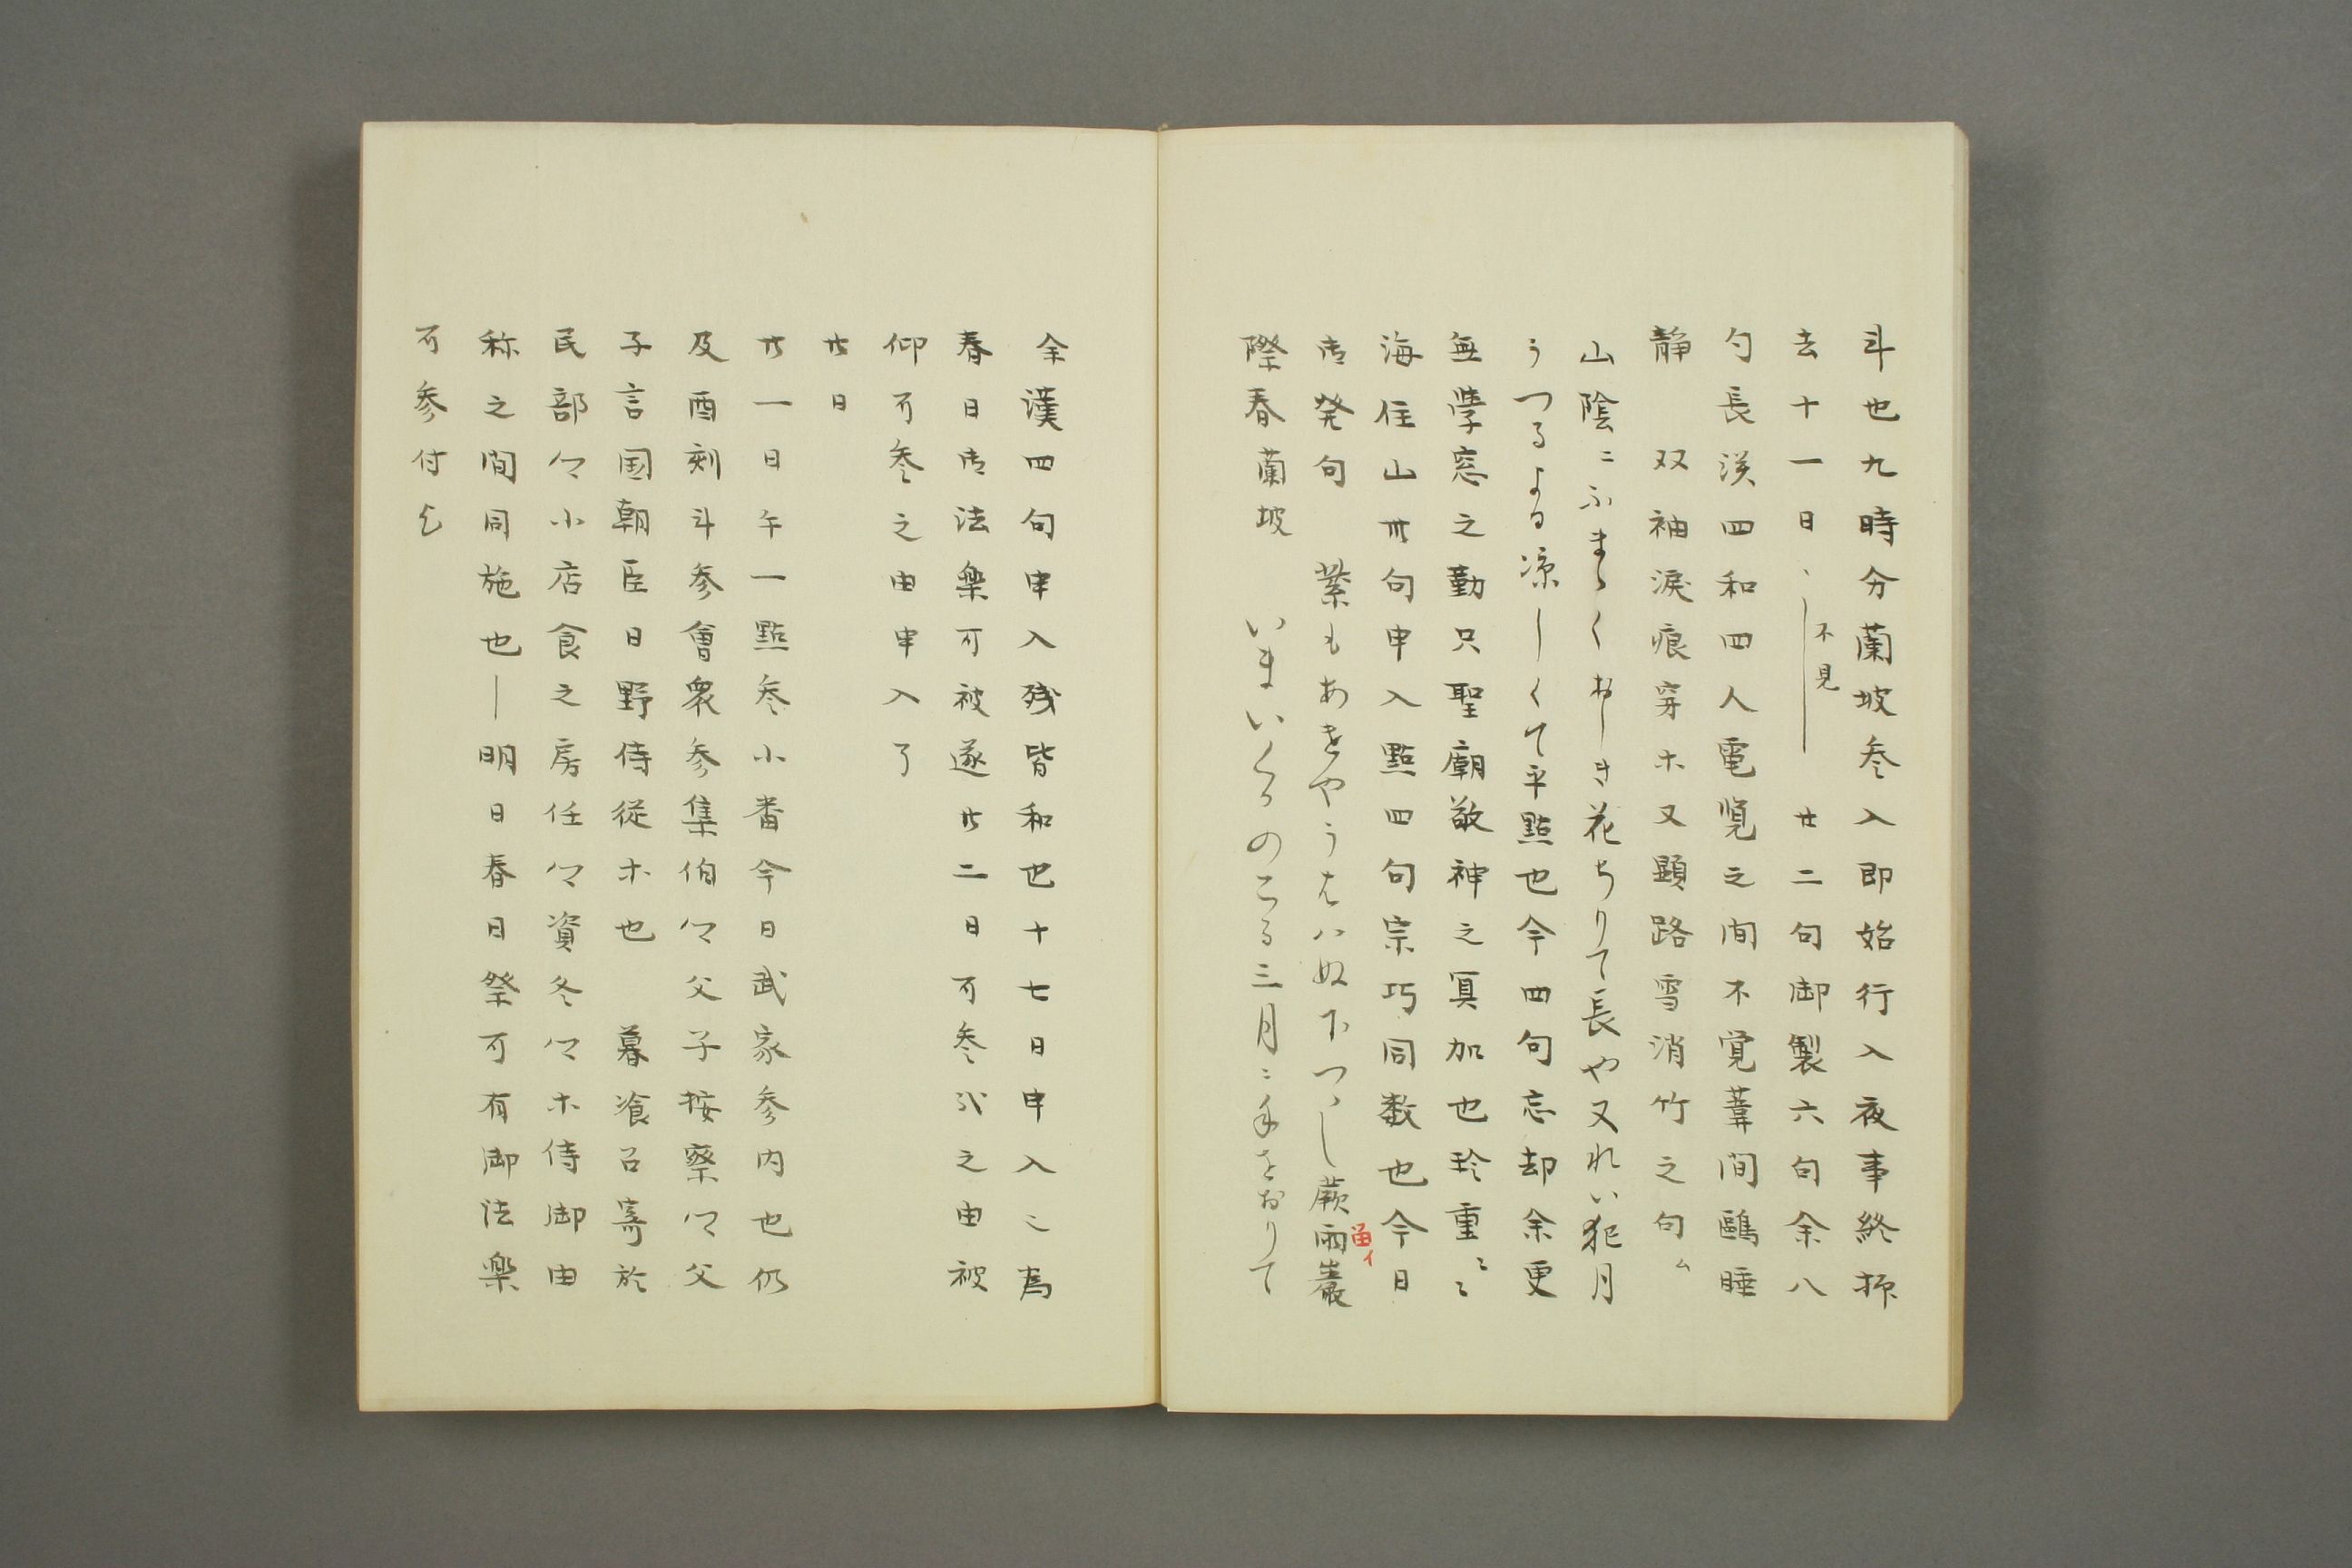 斗也九時分蘭坡参入即始行入夜事終抑
去十一日、｜不見 廿二句御製六句余八
勺長渓四和四人電覧之間不覚葦間鷗睡
静 双袖涙痕穿ホ又顕路雪消竹之句ム
山陰ニふまらくおしき花ちりて長や又れい犯月
うつるよる凉しくて平點也今四句忘却余更
無學窓之勤只聖廟敬神之冥加也珍重〻〻
海住山卅句申入點四句宗巧同数也今日
御発句 蘂もあきやうえハぬ下つゝし蕨雨巖
留イ
際春蘭坡 いまいくかのこる三月ニ手をおりて
余漢四句申入残皆和也十七日申入〻為
春日御法樂可被遂廿二日可参哉之由被
仰可参之由申入了
廿日
廿一日午一點参小番今日武家参内也仍
及酉刻斗参會衆参集伯〻父子按察〻父
子言国朝臣日野侍従ホ也 暮飡召寄於
民部〻小店食之房任〻資冬〻ホ侍御由
称之間同施也｜明日春日祭可有御法樂
可参付乞